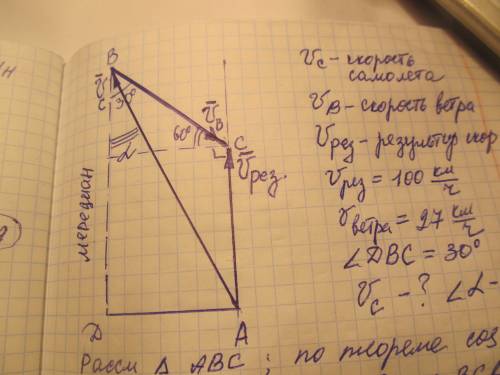 B
30°
V̄c
V̄в
60°
C
V̄рез.
α
меридиан
D
A
Vc – скорость
самолета
Vв – скорость ветра
Vрез – результир скор
Vрез = 100 км/ч
Vветра = 27 км/ч
∠DBC = 30°
Vc – ? ∠α –
Рассм Δ ABC; по теореме cos